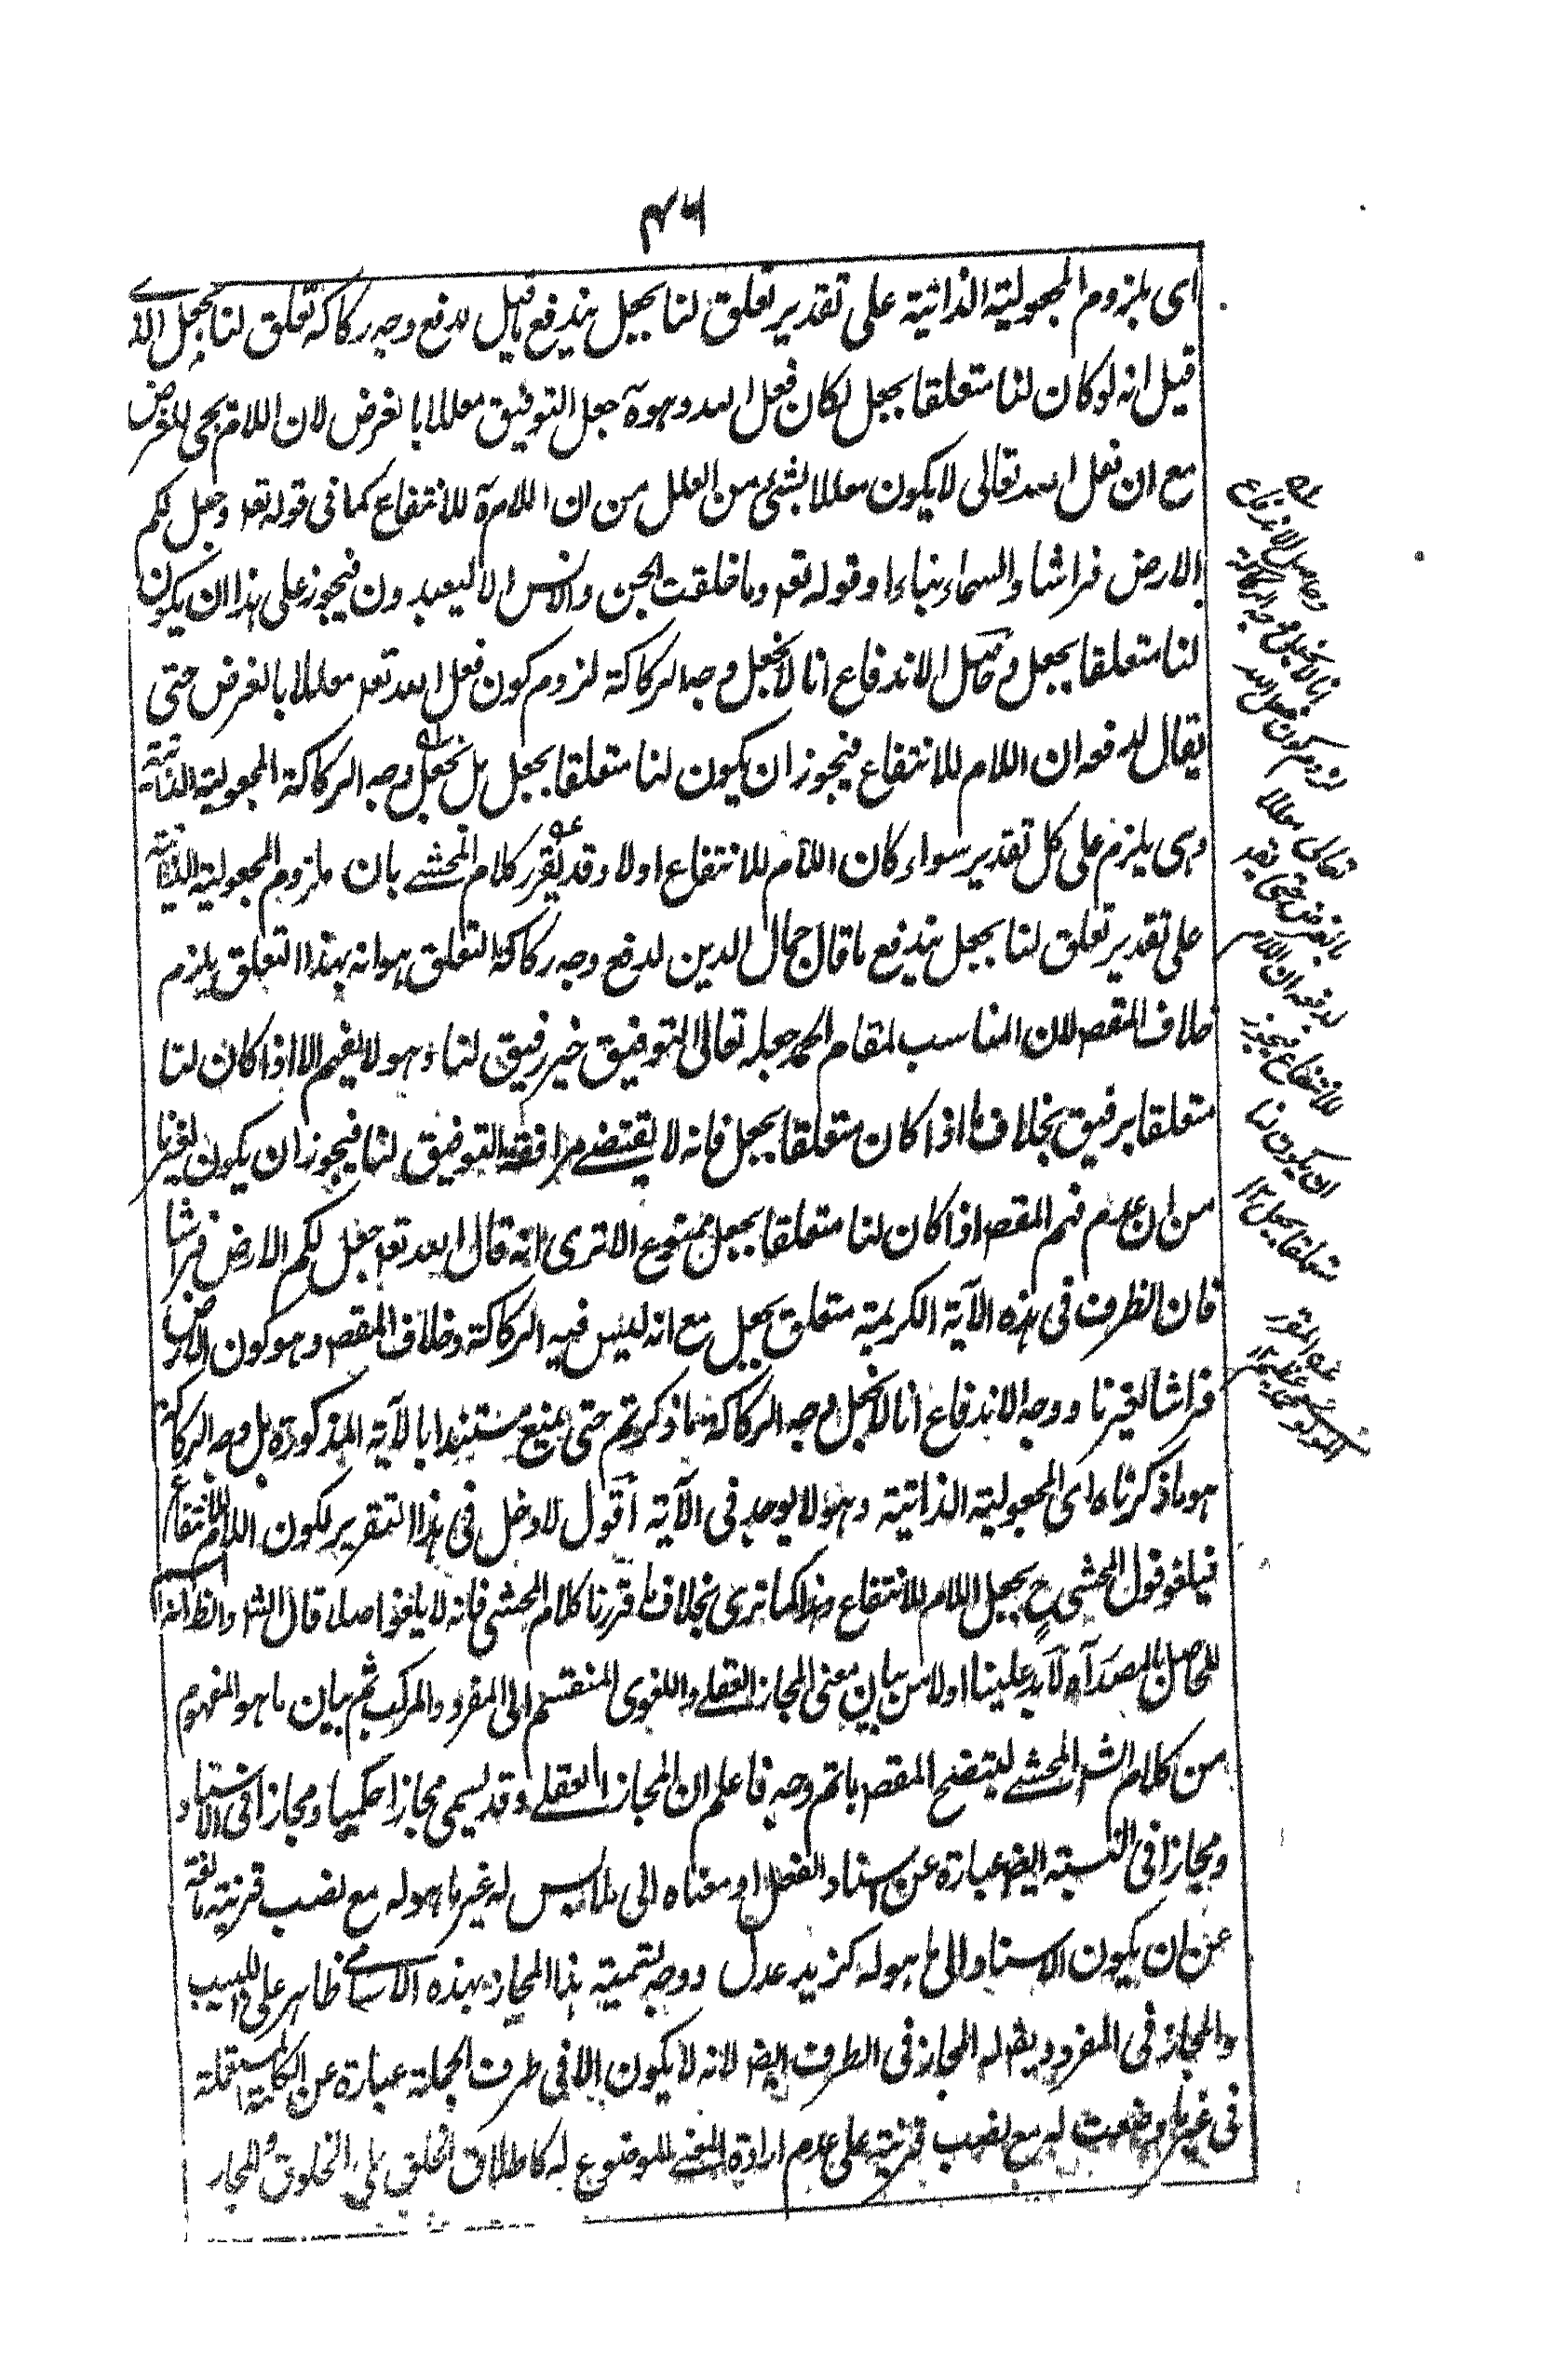 ۴۶
اى بلزوم المجعولية الذاتية على تقدير تعلق لنا بجعل يندفع ما قيل لدفع وجه ركاكة تعلق لنا بجعل الذى
قيل انه لو كان لنا متعلقا بجعل لكان فعل الله وهو آه جعل التوفيق معللا بالغرض لان اللام تجى للغرض
مع ان فعل الله تعالى لا يكون معللا بشئ من العلل من ان اللام آه للانتفاع كما فى قوله تعه وجعل لكم
الارض فراشا والسماء بناءا وقوله تعه وما خلقت الجن والانس الا ليعبدون فيجوز على هذا ان يكون
لنا متعلقا بجعل وحاصل الاندفاع انا لا نجعل وجه الركاكة لزوم كون فعل الله تعه معللا بالغرض حتى
يقال لدفعه ان اللام للانتفاع فيجوز ان يكون لنا متعلقا بجعل بل نجعل وجه الركاكة المجعولية الذاتية
وهى يلزم على كل تقدير سواء كان اللام للانتفاع اولا وقد يقرر كلام المحشے بان بلزوم المجعولية الذاتية
على تقدير تعلق لنا بجعل يندفع ما قال جمال الدين لدفع وجه ركاكة التعلق هو انه بهذا التعلق يلزم
خلاف المقصد لان المناسب لمقام الحمد جعله تعالى التوفيق خير رفيق لنا وهو لا يفهم الا اذا كان لنا
متعلقا برفيق بخلاف ما اذا كان متعلقا بجعل فانه لا يقتضے مرافقة التوفيق لنا فيجوز ان يكون لغيرنا
من ان عدم فهم المقصد اذا كان لنا متعلقا بجعل ممنوع الا ترى انه قال الله تعه جعل لكم الارض فراشا
فان الظرف فى هذه الآية الكريمة متعلق بجعل مع انه ليس فيه الركاكة وخلاف المقصد وهو كون الارض
فراشا لغيرنا ووجه الاندفاع انا لا نجعل وجه الركاكة ما ذكرتم حتى يمنع مستندا بالآية المذكورة بل وجه الركاكة
هو ما ذكرناه اى المجعولية الذاتية وهو لا يوجد فى الآية اقول لا دخل فى هذا التقرير لكون اللام للانتفاع
فيلغو قول المحشى ح بجعل اللام للانتفاع وهذا كما ترى بخلاف ما قررنا كلام المحشى فانه لا يلغو اصلا قال الش والظ انه
للحاصل بالمصدر آه لابد علينا اولا من بيان معنى المجاز العقلے واللغوى المنقسم الى المفرد والمركب ثم بيان ما هو المفهوم
من كلام الش والمحشے ليتضح المقصد باتم وجه فاعلم ان المجاز العقلے وقد يسمى مجازا حكميا ومجازا فى الاسناد
ومجازا فى النسبة ايضا عبارة عن اسناد الفعل او معناه الى ملابس له غير ما هو له مع نصب قرينة مانعة
عن ان يكون الاسناد الى ما هو له كزيد عدل ووجه تسمية هذا المجاز بهذه الاسامے ظاهر على اللبيب
والمجاز فى المفرد ويقال له المجاز فى الطرف ايضا لانه لا يكون الا فى طرف الجملة عبارة عن الكلمة المستعملة
فى غير ما وضعت له مع نصب قرينة على عدم ارادة المعنے الموضوع له كاطلاق الخلق على المخلوق والمجاز
وحاصل الاندفاع
انا لا نجعل وجه الركاكة
لزوم كون فعل الله
تعالى معللا
بالغرض حتى يقه
لدفعه ان اللام
للانتفاع فيجوز
ان يكون لنا
متعلقا بجعل ۱۲